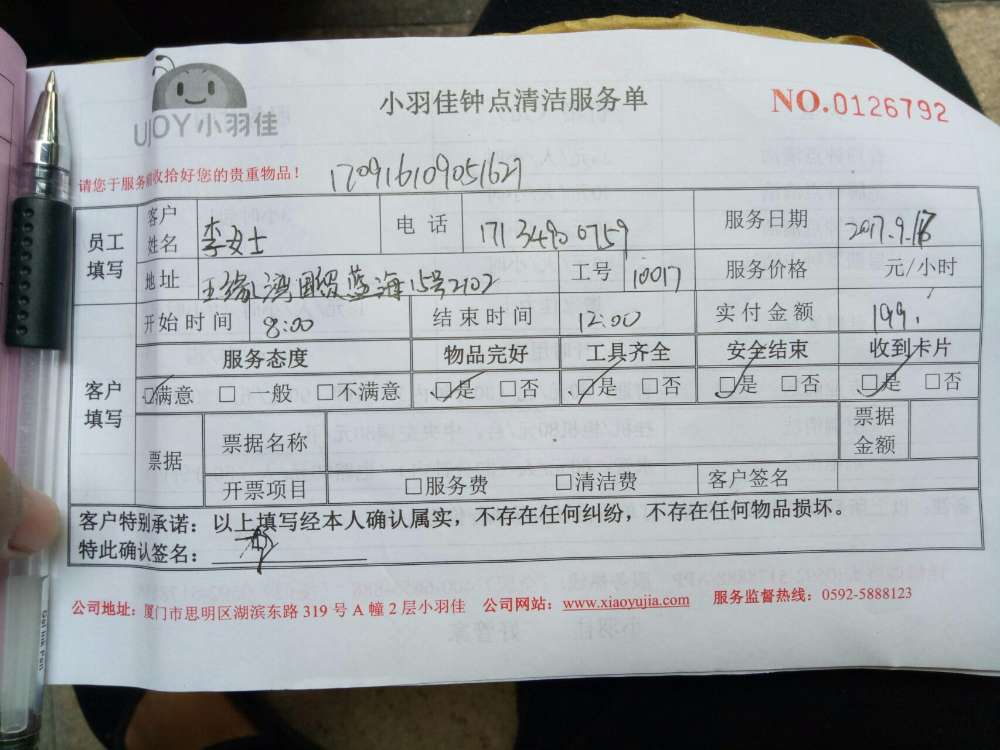 UJOY 小羽佳
小羽佳钟点清洁服务单
NO.0126792
请您于服务前收拾好您的贵重物品！
170916109051627
员工填写 客户姓名 李女士 电话 17134900759 服务日期 2017.9.
地址 海国贸蓝海15号2102 工号 10017 服务价格 元/小时
开始时间 8:00 结束时间 12:00 实付金额 199.
客户填写 服务态度 物品完好 工具齐全 安全结束 收到卡片
☑满意 □一般 □不满意 ☑是 □否 ☑是 □否 ☑是 □否 ☑是 □否
票据 票据名称 票据金额
开票项目 □服务费 □清洁费 客户签名
客户特别承诺：以上填写经本人确认属实，不存在任何纠纷，不存在任何物品损坏。
特此确认签名：
公司地址：厦门市思明区湖滨东路 319 号 A 幢 2 层小羽佳 公司网站：www.xiaoyujia.com 服务监督热线：0592-5888123